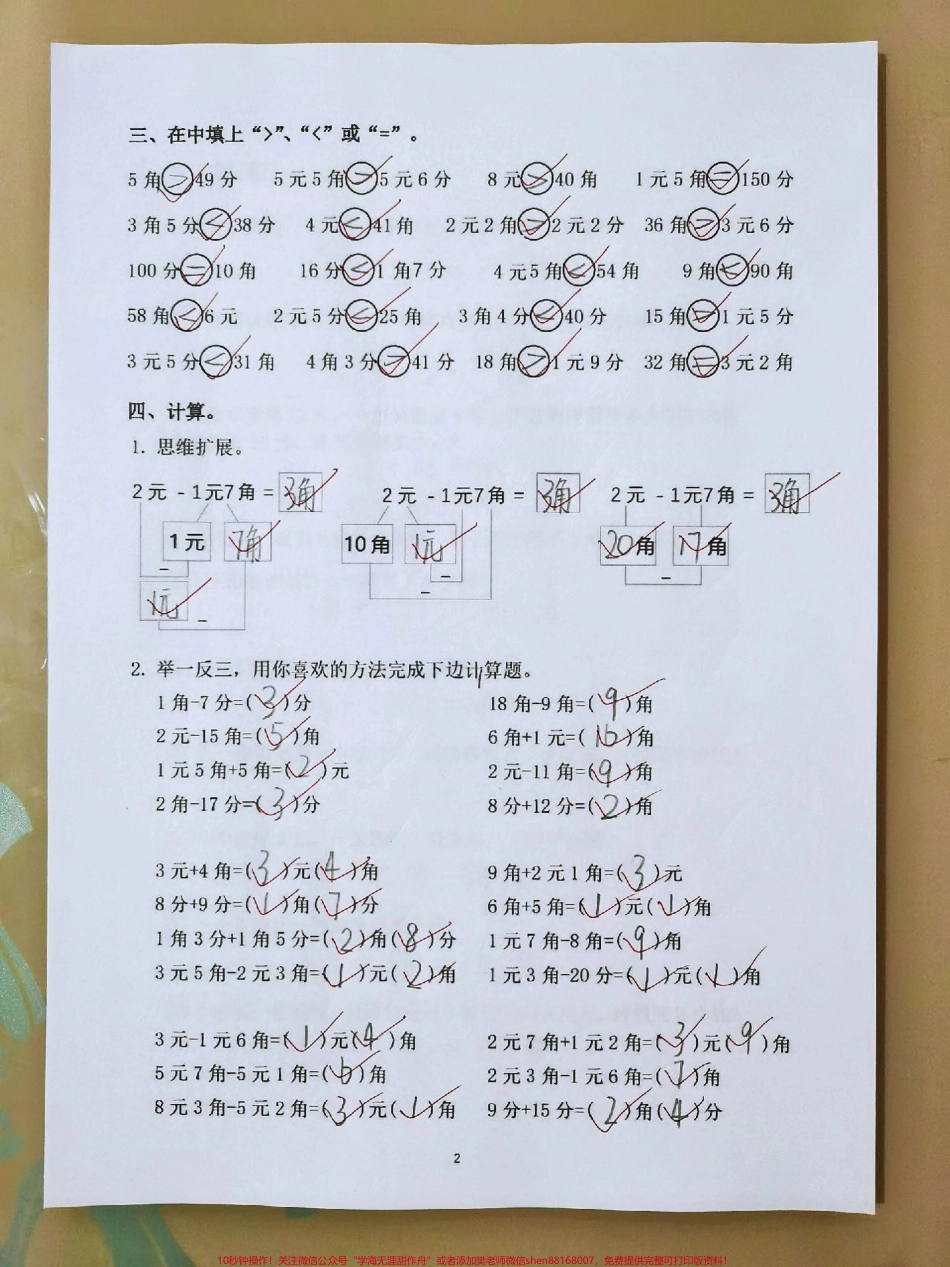 三、在中填上“>”、“<”或“=”。
5角>49分 5元5角>5元6分 8元>40角 1元5角=150分
3角5分<38分 4元<41角 2元2角>2元2分 36角>3元6分
100分=10角 16分<1角7分 4元5角<54角 9角<90角
58角<6元 2元5分<25角 3角4分<40分 15角>1元5分
3元5分<31角 4角3分>41分 18角>1元9分 32角=3元2角
四、计算。
1. 思维扩展。
2元-1元7角=3角 2元-1元7角=3角 2元-1元7角=3角
1元 7角 10角 1元 20角 17角
- - -
1元 - -
2. 举一反三，用你喜欢的方法完成下边计算题。
1角-7分=(3)分 18角-9角=(9)角
2元-15角=(5)角 6角+1元=(16)角
1元5角+5角=(2)元 2元-11角=(9)角
2角-17分=(3)分 8分+12分=(2)角
3元+4角=(3)元(4)角 9角+2元1角=(3)元
8分+9分=(1)角(7)分 6角+5角=(1)元(1)角
1角3分+1角5分=(2)角(8)分 1元7角-8角=(9)角
3元5角-2元3角=(1)元(2)角 1元3角-20分=(1)元(1)角
3元-1元6角=(1)元(4)角 2元7角+1元2角=(3)元(9)角
5元7角-5元1角=(6)角 2元3角-1元6角=(7)角
8元3角-5元2角=(3)元(1)角 9分+15分=(2)角(4)分
2
10秒钟操作！关注微信公众号“学海无涯甜作舟”或者添加樊老师微信shen88168007，免费提供完整可打印版资料！